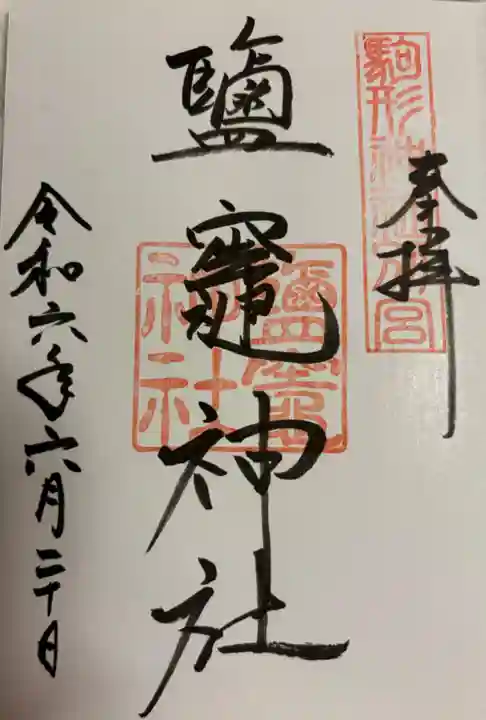 奉拝
駒形神社本宮
鹽竈神社
鹽竈神社
令和六年六月二十日